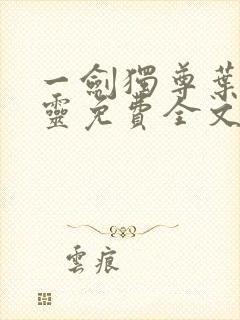 一劍獨尊葉
靈免費全文
雲痕